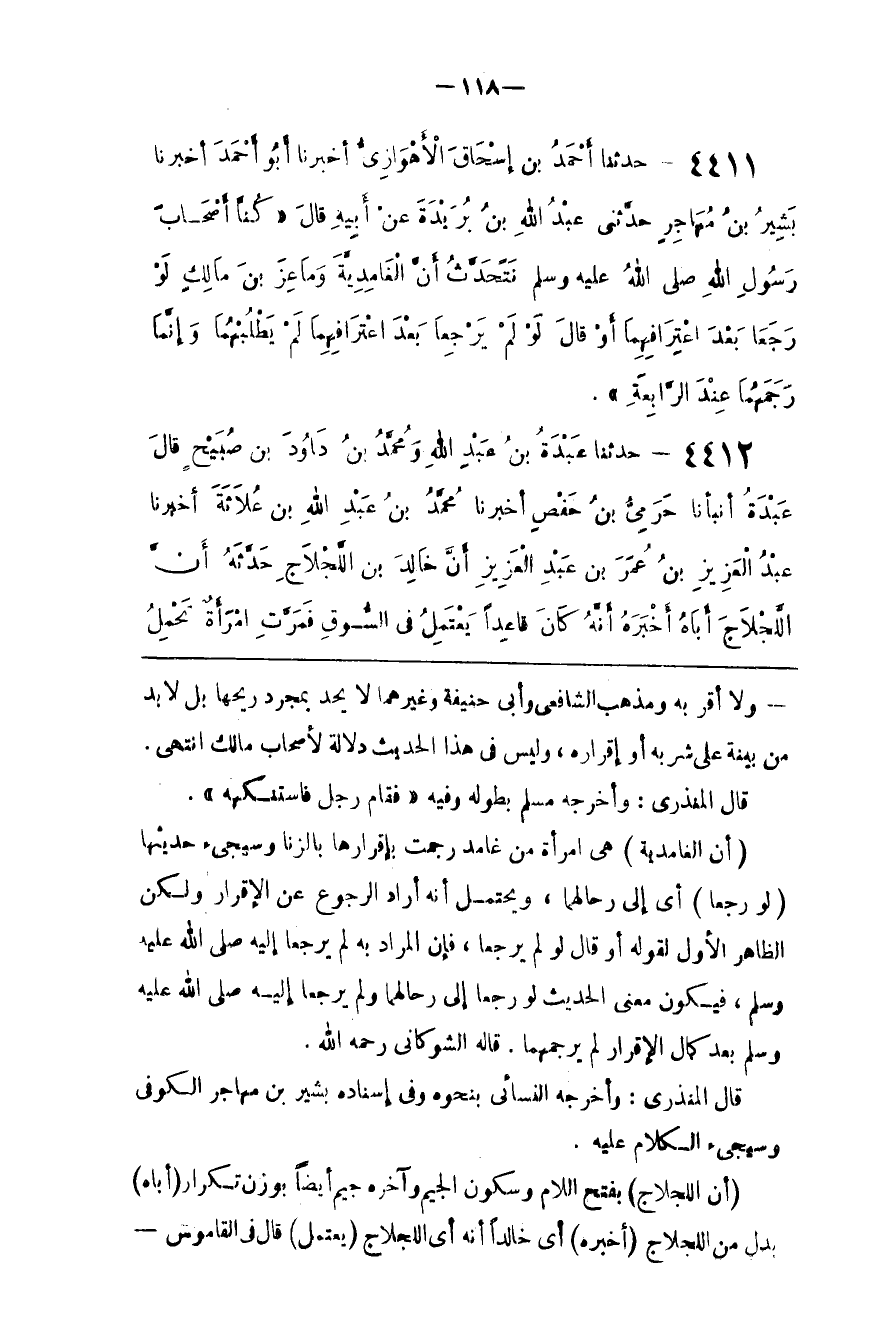 — ١١٨ —
٤٤١١ — حدثنا أَحْمَدُ بن إِسْحَاقَ الْأَهْوَازِىُّ أخبرنا أَبُو أَحْمَدَ أخبرنا
بَشِيرُ بنُ مُهَاجِرٍ حدَّثنى عبْدُ اللهِ بنُ بُرَيْدَةَ عنْ أَبِيهِ قالَ « كُنَّا أَصْحَابَ
رَسُولِ اللهِ صلى اللهُ عليه وسلم نَتَحَدَّثُ أَنَّ الْغَامِدِيَّةَ وَمَاعِزَ بنَ مالِكٍ لَوْ
رَجَعَا بَعْدَ اعْتِرَافِهِمَا أَوْ قالَ لَوْ لَمْ يَرْجِعَا بَعْدَ اعْتِرَافِهِمَا لَمْ يَطْلُبْهُمَا وَإِنَّمَا
رَجَمَهُمَا عِنْدَ الرَّابِعَةِ » .
٤٤١٢ — حدثنا عَبْدَةُ بنُ عَبْدِ اللهِ وَمُحمَّدُ بنُ دَاوُدَ بن صُبَيْحٍ قالَ
عَبْدَةُ أنبأنا حَرَمِىُّ بنُ حَفْصٍ أخبرنا مُحمَّدُ بنُ عبْدِ اللهِ بن عُلَاثَةَ أخبرنا
عبْدُ الْعَزِيزِ بنُ عُمَرَ بن عَبْدِ الْعَزِيزِ أَنَّ خَالِدَ بن اللَّجْلَاجِ حَدَّثَهُ أَنَّ
اللَّجْلَاجَ أَبَاهُ أَخْبَرَهُ أَنَّهُ كَانَ قاعِداً يَعْتَمِلُ فى السُّوقِ فَمَرَّتِ امْرَأَةٌ تَحْمِلُ
— ولا أقر به ومذهب الشافعى وأبى حنيفة وغيرهما لا يحد بمجرد ريحها بل لابد
من بينة على شربه أو إقراره ، وليس فى هذا الحديث دلالة لأصحاب مالك انتهى .
قال المنذرى : وأخرجه مسلم بطوله وفيه « فقام رجل فاستنكهه » .
( أن الغامدية ) هى امرأة من غامد رجمت بإقرارها بالزنا وسيجىء حديثها
( لو رجعا ) أى إلى رحالهما ، ويحتمل أنه أراد الرجوع عن الإقرار ولكن
الظاهر الأول لقوله أو قال لو لم يرجعا ، فإن المراد به لم يرجعا إليه صلى الله عليه
وسلم ، فيكون معنى الحديث لو رجعا إلى رحالهما ولم يرجعا إليه صلى الله عليه
وسلم بعد كمال الإقرار لم يرجمهما . قاله الشوكانى رحمه الله .
قال المنذرى : وأخرجه النسائى بنحوه وفى إسناده بشير بن مهاجر الكوفى
وسيجىء الكلام عليه .
(أن اللجلاج) بفتح اللام وسكون الجيم وآخره جيم أيضاً بوزن تكرار (أباه)
بدل من اللجلاج (أخبره) أى خالداً أنه أى اللجلاج (يعتمل) قال فى القاموس —